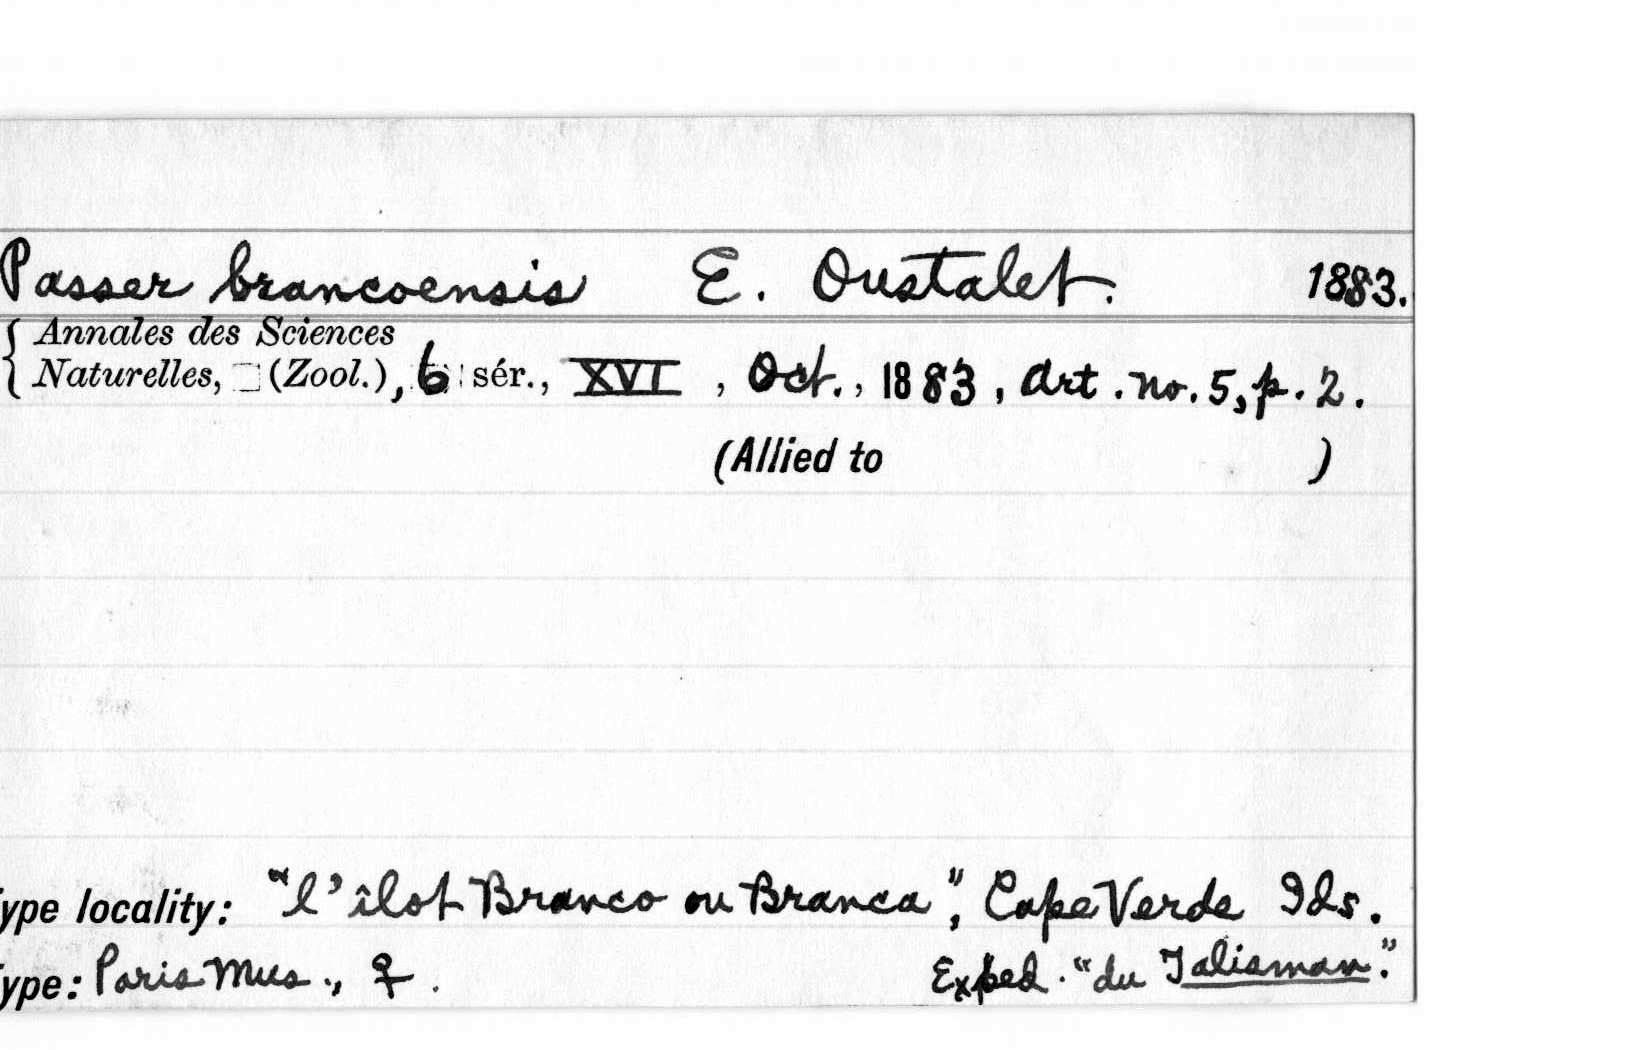 Passer brancoensis E. Oustalet. 1883.
Annales des Sciences
Naturelles, (Zool.), 6 sér., XVI, Oct., 1883, Art. no. 5, p. 2.
(Allied to )
ype locality: "l'îlot Branco ou Branca", Cape Verde Ids.
ype: Paris Mus., ♀. Exped. "du Talisman."